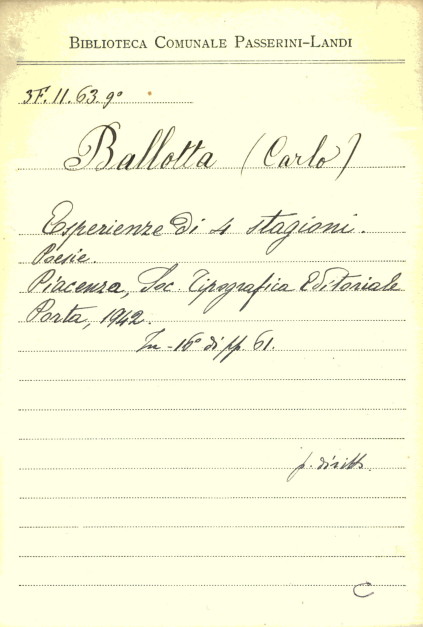 BIBLIOTECA COMUNALE PASSERINI-LANDI
3F. 11. 63. 9°
Ballotta (Carlo)
Esperienze di 4 stagioni.
Poesie.
Piacenza, Soc. Tipografica Editoriale
Porta, 1942.
In-16° di pp. 61.
p. diritto.
C